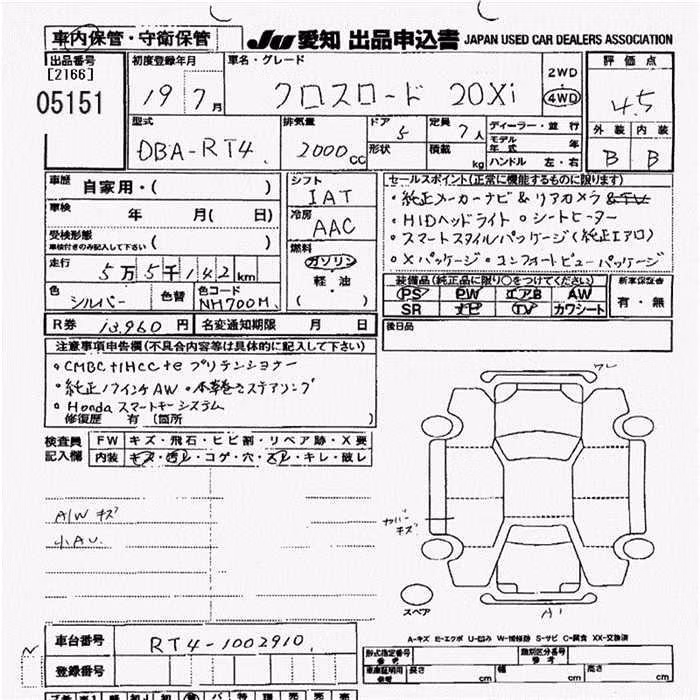 車内保管・守衛保管
JU 愛知 出品申込書 JAPAN USED CAR DEALERS ASSOCIATION
出品番号
[2166]
05151
初度登録年月
19 年 7 月
車名・グレード
クロスロード 20Xi
2WD
4WD
評価点
4.5
外装 内装
B B
型式
DBA-RT4
排気量
2000 cc
ドア 5
形状
定員 7人
積載 kg
ディーラー・並行
モデル年式 年
ハンドル 左・右
車歴 自家用・( )
車検 年 月( 日)
受検形態
車検付きのみ記入して下さい ( )
走行 5万5千142 km
色 シルバー
色替
色コード NH700M
シフト
IAT
冷房
AAC
燃料
ガソリン
軽・油
( )
セールスポイント(正常に機能するものに限ります)
・純正メーカーナビ&リアカメラ&TV
・HIDヘッドライト ・シートヒーター
・スマートスタイルパッケージ(純正エアロ)
・Xパッケージ・コンフォートビューパッケージ
装備品(純正品に限り○をつけてください)
PS PW エアB AW
SR ナビ TV カワシート
新車保証書
有・無
R券 13,960 円
名変通知期限 月 日
後日品
注意事項申告欄(不具合内容等は具体的に記入して下さい)
・CMBC+IHCC+e プリテンショナー
・純正17インチAW ・本革巻きステアリング
・Honda スマートキーシステム
修復歴 有(箇所 )
検査員
記入欄
FW キズ・飛石・ヒビ割・リペア跡・X要
内装 キズ・汚レ・コゲ・穴・スレ・キレ・破レ
A/W キズ
小AU.
カバー
キズ
スペア
A1
A-キズ E-エクボ U-凹み W-補修跡 S-サビ C-腐食 XX-交換済
車台番号 RT4-1002910
登録番号
形式指定番号
※参考
類別区分番号
※参考
車庫証明用
※参考
長さ cm
幅 cm
高さ cm